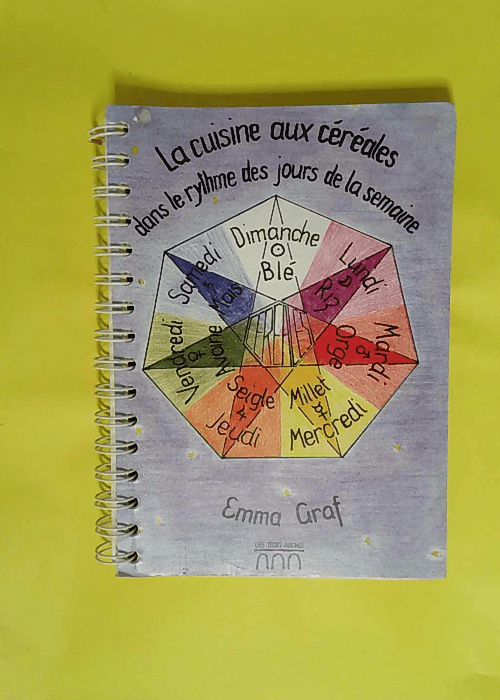 La cuisine aux céréales
dans le rythme des jours de la semaine
Dimanche
☉
Blé
Lundi
☽
Riz
Mardi
♂
Orge
Mercredi
☿
Millet
Jeudi
♃
Seigle
Vendredi
♀
Avoine
Samedi
Maïs
Emma Graf
LES TROIS ARCHES